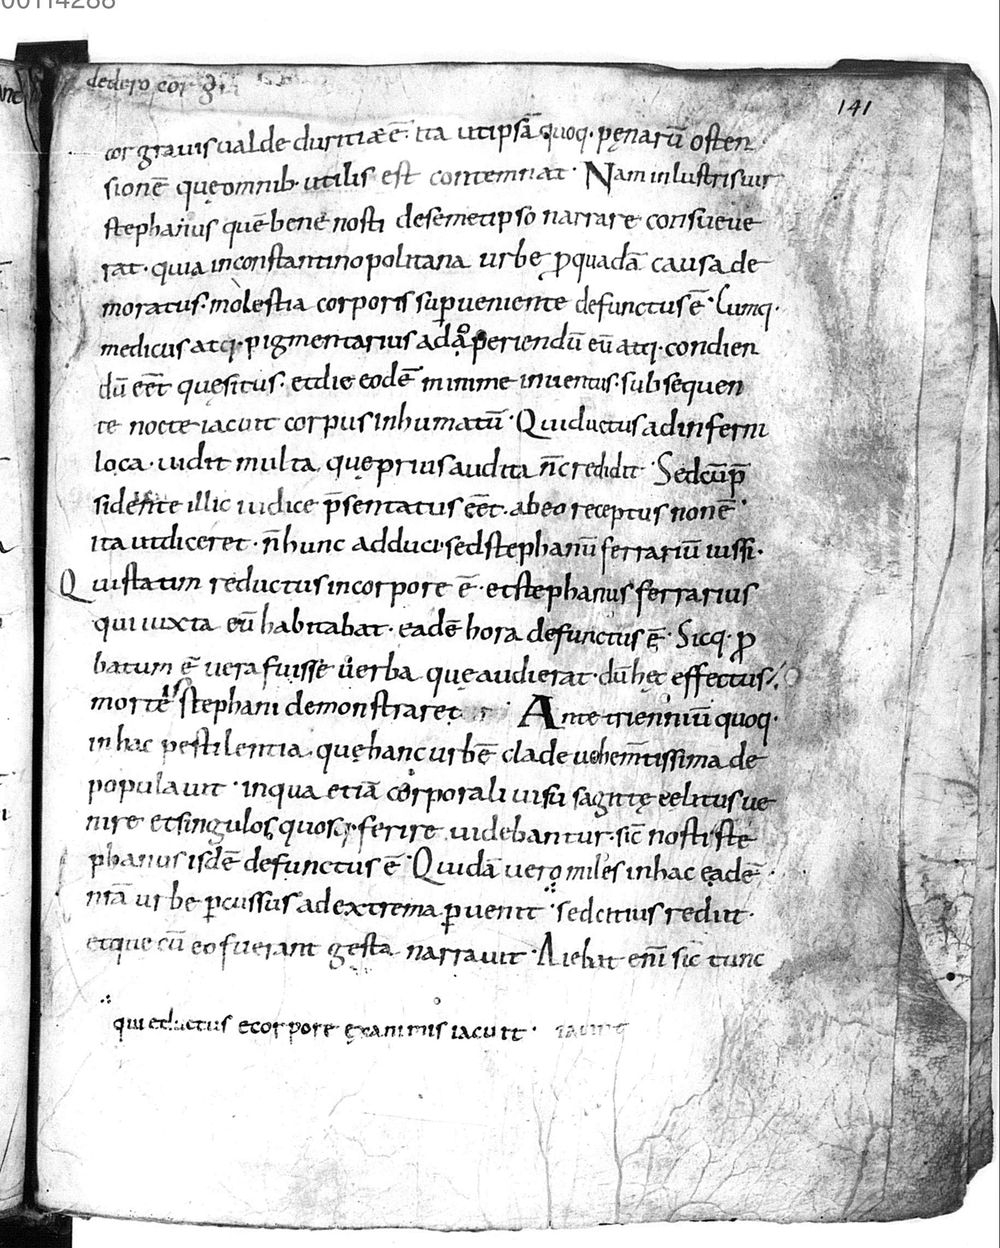 00114288
dedero cor
141
cor grauis ualde duritiæ ē· ita ut ipsā quoq· pęnarū osten
sionē quę omnib· utilis est contemnat· Nam inlustris uir
stephanus quē bene nosti de semetipso narrare consueue
rat· quia in constantinopolitana urbe ꝑ quadā causa de
moratus· molestia corporis suꝑueniente defunctus ē· Cumq·
medicus atq· pigmentarius ad aꝑeriendū eū atq· condien
dū eēt quesitus· et die eodē minime inuentus· subsequen
te nocte iacuit corpus inhumatū· Qui ductus ad inferni
loca· uidit multa, quę prius audita n̄ credidit· Sed cū p̄
sidente illic iudice p̄sentatus eēt· ab eo receptus non ē
ita ut diceret· n̄ hunc adduci· sed stephanū ferrariū iussi·
Qui statim reductus in corpore ē· et stephanus ferrarius
qui iuxta eū habitabat· eadē hora defunctus ē· Sicq· ꝓ
batum ē uera fuisse uerba quę audierat· dū hęc effectus
mortē stephani demonstraret Ante trienniū quoq·
in hac pestilentia quę hanc urbē clade uehem̄tissima de
populauit· in qua etiā corporali uisu sagittę celitus ue
nire et singulos quosq· ferire uidebantur· sic̄ nosti ste
phanus isdē defunctus ē· Quidā uero miles in hac eadē
nrā urbe ꝑcussus ad extrema ꝑuenit· sed citius rediit·
et que cū eo fuerant gesta narrauit· Aiebat enī sic̄ tunc
qui eductus e corpore exanimis iacuit· iacuit